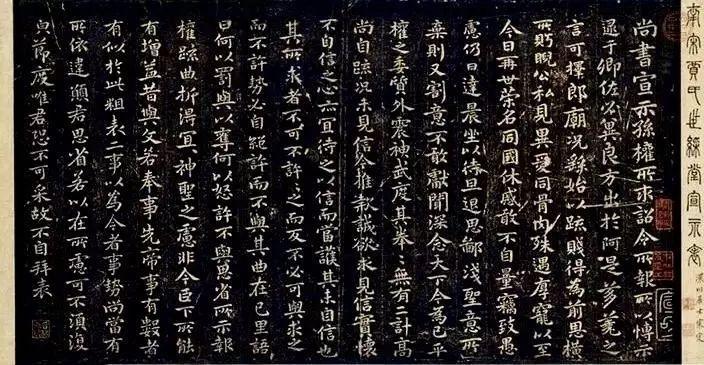 南宋賈氏世綵堂宣示表
尚書宣示孫權所求詔令所報所以博示
逮于卿佐必冀良方出於阿是芻蕘之
言可擇郎廟況繇始以疏賤得為前恩橫
所眄睨公私見異愛同骨肉殊遇厚寵以至
今日再世榮名同國休慼敢不自量竊致愚
慮仍日達晨坐以待旦退思鄙淺聖意所
棄則又割意不敢獻聞深念天下今為已平
權之委質外震神武度其拳〻無有二計高
尚自疏況未見信今推款誠欲求見信實懷
不自信之心亦宜待之以信而當護其未自信也
其所求者不可不許〻之而反不必可與求之
而不許勢必自絕許而不與其曲在己里語
曰何以罰與以奪何以怒許不與思省所示報
權疏曲折得宜〻神聖之慮非今臣下所能
有增益昔與文若奉事先帝事有數者
有似於此粗表二事以為今者事勢尚當有
所依違願君思省若以在所慮可不須復
與節度唯君恐不可采故不自拜表